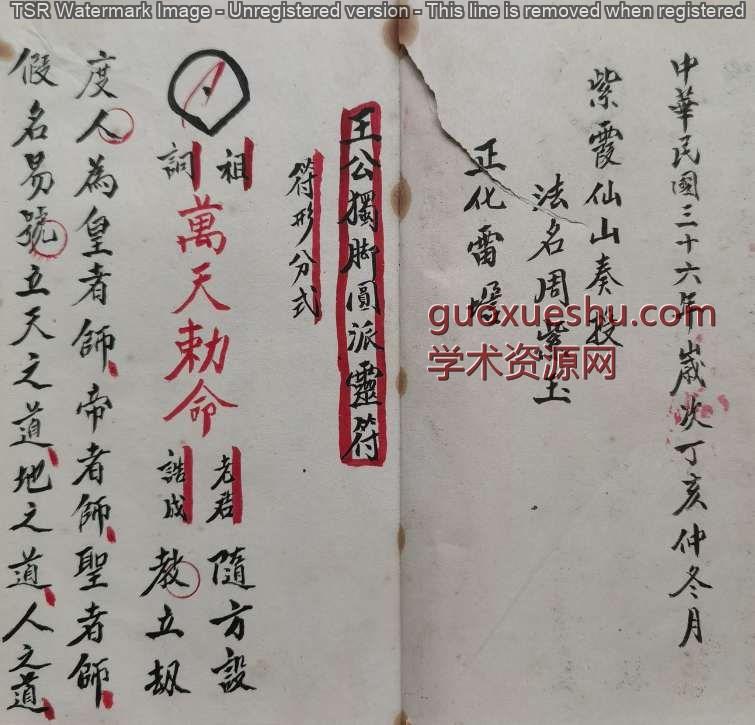 TSR Watermark Image - Unregistered version - This line is removed when registered
中華民國三十六年歲次丁亥仲冬月
紫霞仙山奏投
法名周紫玉
正化雷壇
guoxueshu.com
学术资源网
王公獨脚圓派靈符
符形分式
祖
詞
萬天勅命
老君
誥成
隨方設
教立劫
度人為皇者師帝者師聖者師
假名易號立天之道地之道人之道